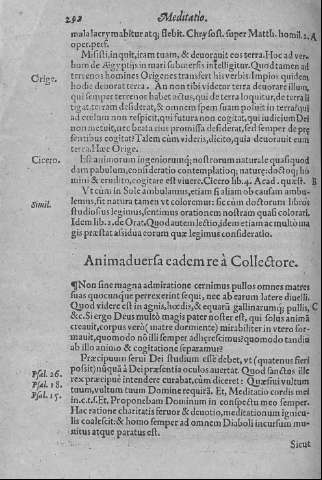 292 Meditatio.
mala lacrymabitur atq; flebit. Chrysost. super Matth. homil. 2. A
oper. perf.
Misisti, inquit, iram tuam, & deuorauit eos terra. Hoc ad ver-
bum de Ægyptijs in mari submersis intelligitur. Quod tamen ad
Orige. terrenos homines Origenes transfert his verbis: Impios quidem
hodie deuorat terra. An non tibi videtur terra deuorare illum,
qui semper terrenos habet actus, qui de terra loquitur, de terra li
tigat, terram desiderat, & omnem spem suam posuit in terra? qui
ad cœlum non respicit, qui futura non cogitat, qui iudicium Dei
non metuit, nec beata eius promissa desiderat, sed semper de præ
sentibus cogitat? Talem cùm videris, dicito, quia deuorauit eum
terra. Hæc Orige.
Cicero. Est animorum ingeniorumq; nostrorum naturale quasi quod
dam pabulum, consideratio contemplatioq; naturæ: doctoq; ho
mini & erudito, cogitare est viuere. Cicero lib. 4. Acad. quæst. B
Vt cùm in Sole ambulamus, etiam si aliam ob causam ambu-
Simil. lemus, fit natura tamen vt coloremur: sic cùm doctorum libros
studiosius legimus, sentimus orationem nostram quasi colorari.
Idem lib. 2. de Orat. Quod autem lectio, idem etiam ac multò ma
gis præstat assidua eorum quæ legimus consideratio.
Animaduersa eadem re à Collectore.
¶Non sine magna admiratione cernimus pullos omnes matres
suas quocunque perrexerint sequi, nec ab earum latere diuelli.
Quod videre est in agnis, hœdis, & equarũ gallinarumq; pullis, C
&c. Si ergo Deus multò magis pater noster est, qui solus animã
creauit, corpus verò (matre dormiente) mirabiliter in vtero for-
mauit, quomodo nõ illi semper adhærescimus? quomodo tandiu
ab illo animo & cogitatione separamur?
Præcipuum serui Dei studium esse debet, vt (quatenus fieri
possit) nũquã à Dei præsentia oculos auertat. Quod sanctos ille
Psal. 26. rex præcipuè intendere curabat, cùm diceret: Quæsiui vultum
Psal. 18. tuum, vultum tuum Domine requirã. Et, Meditatio cordis mei
Psal. 15. in. c. t. s. Et, Proponebam Dominum in conspectu meo semper.
Hac ratione charitatis feruor & deuotio, meditationum ignicu-
lis coalescit: & homo semper ad omnem Diaboli incursum mu-
nitus atque paratus est.
Sicut